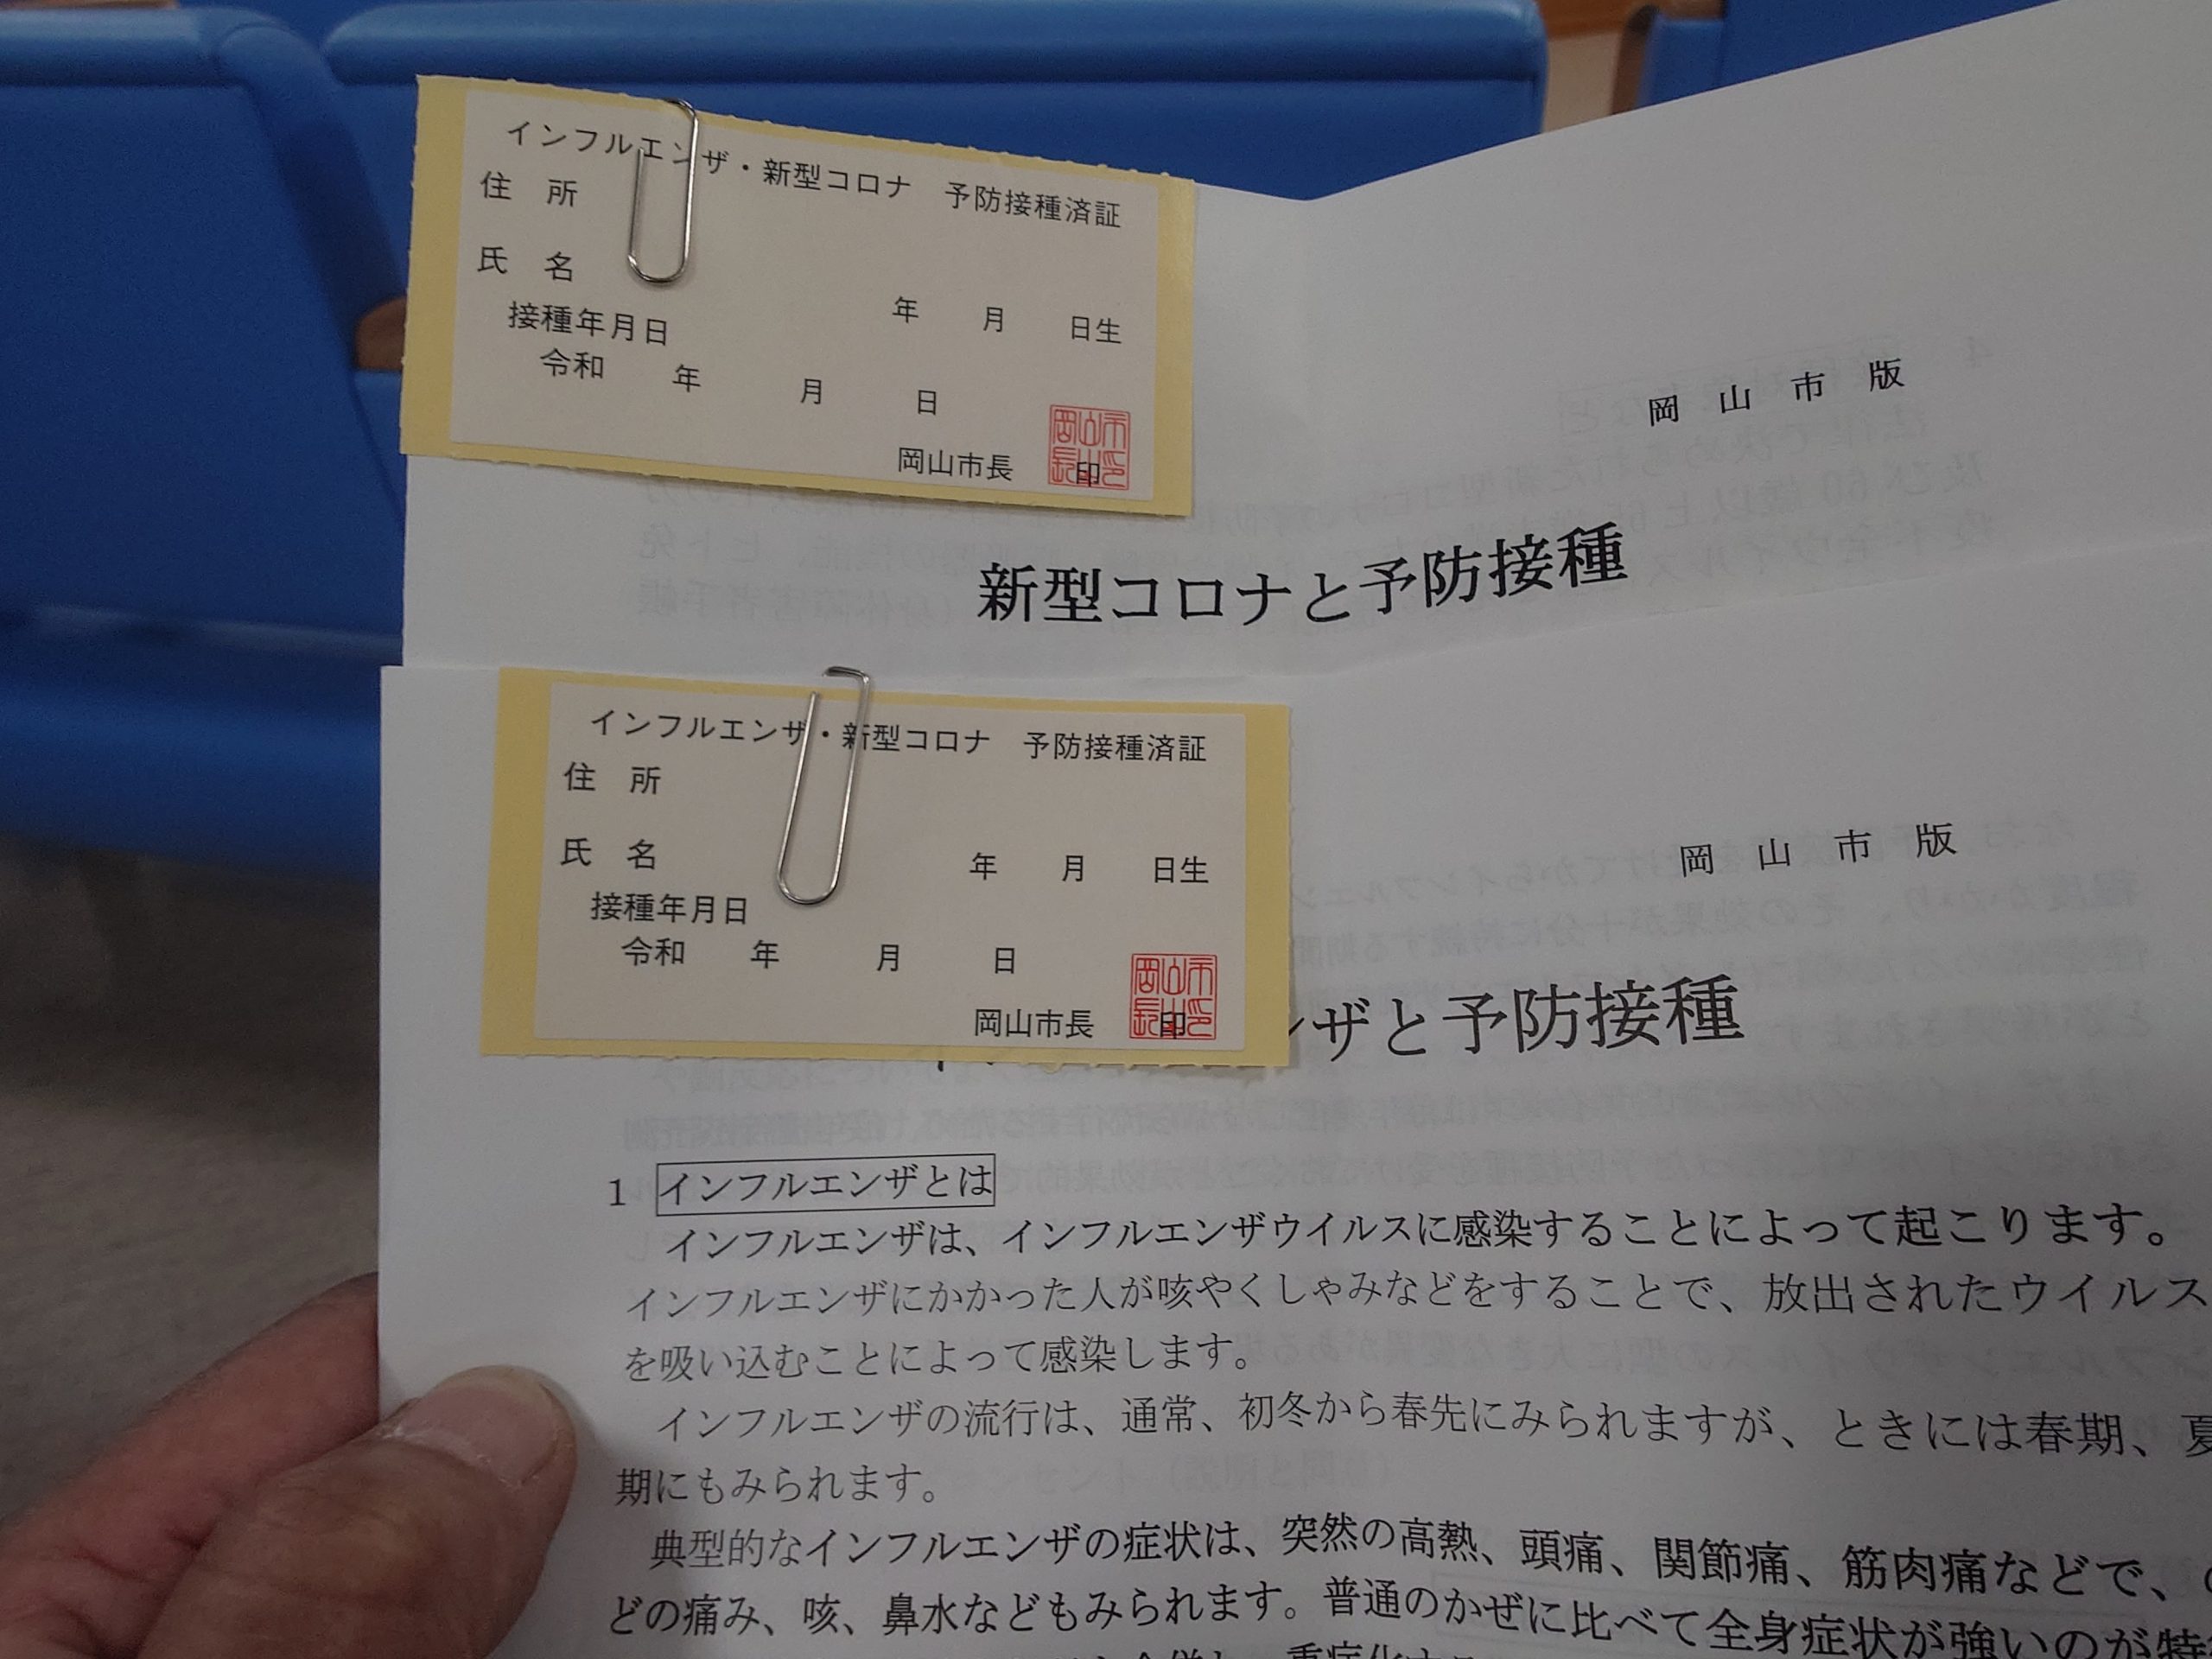 インフルエンザ・新型コロナ　予防接種済証
住　所
氏　名
年　月　日生
接種年月日
令和　年　月　日
岡山市長　印
岡山市版
新型コロナと予防接種
インフルエンザ・新型コロナ　予防接種済証
住　所
氏　名
年　月　日生
接種年月日
令和　年　月　日
岡山市長　印
岡山市版
ザと予防接種
1 インフルエンザとは
インフルエンザは、インフルエンザウイルスに感染することによって起こります。
インフルエンザにかかった人が咳やくしゃみなどをすることで、放出されたウイルス
を吸い込むことによって感染します。
インフルエンザの流行は、通常、初冬から春先にみられますが、ときには春期、夏
期にもみられます。
典型的なインフルエンザの症状は、突然の高熱、頭痛、関節痛、筋肉痛などで、
どの痛み、咳、鼻水などもみられます。普通のかぜに比べて全身症状が強いのが特